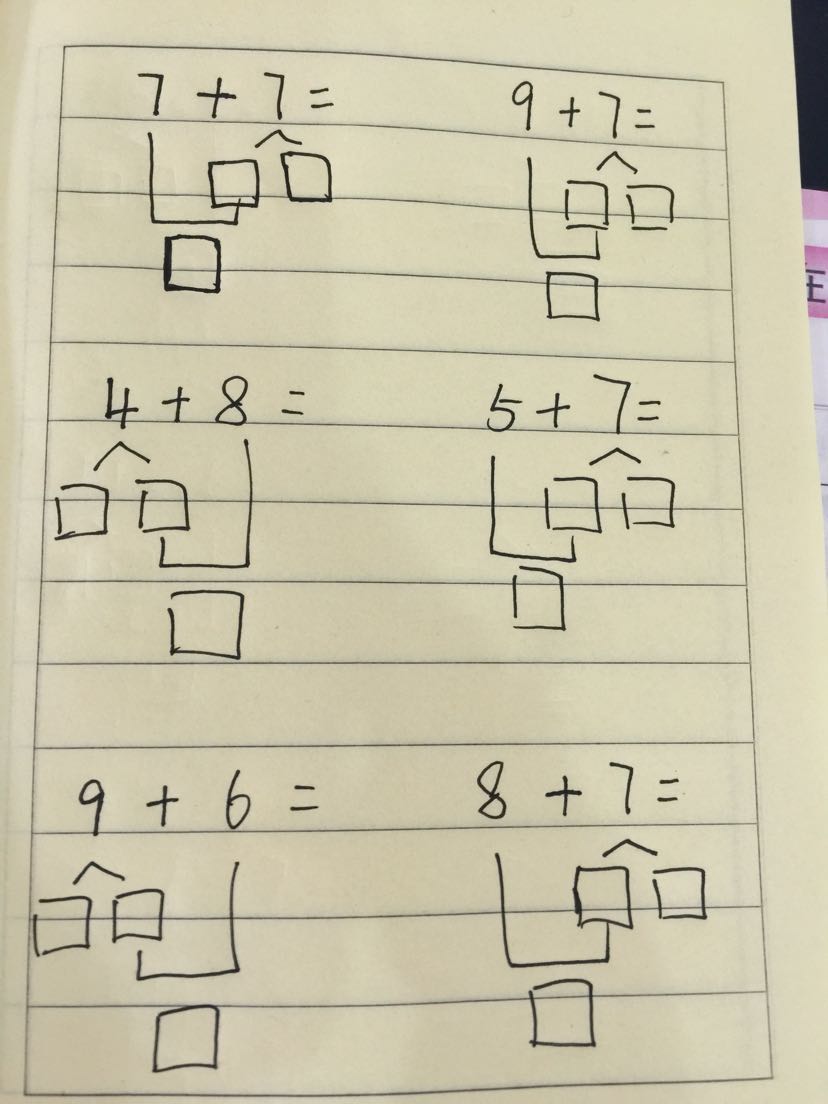 7 + 7 = 9 + 7 =
4 + 8 = 5 + 7 =
9 + 6 = 8 + 7 =